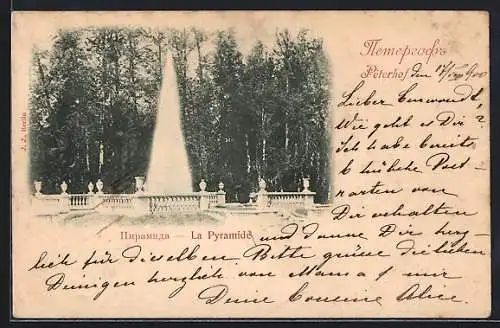 Петергофъ
Peterhof, den 17/ 900
J. J. Berlin
Lieber
Wie geht es Dir?
Ich habe bereits
6 hübche Post-
karten von
Dir erhalten
Пирамида — La Pyramide
und danke Dir herz-
lich für dieselben. Bitte grüsse die lieben
Deinigen herzlich von Mama & mir
Deine Cousine Alice.